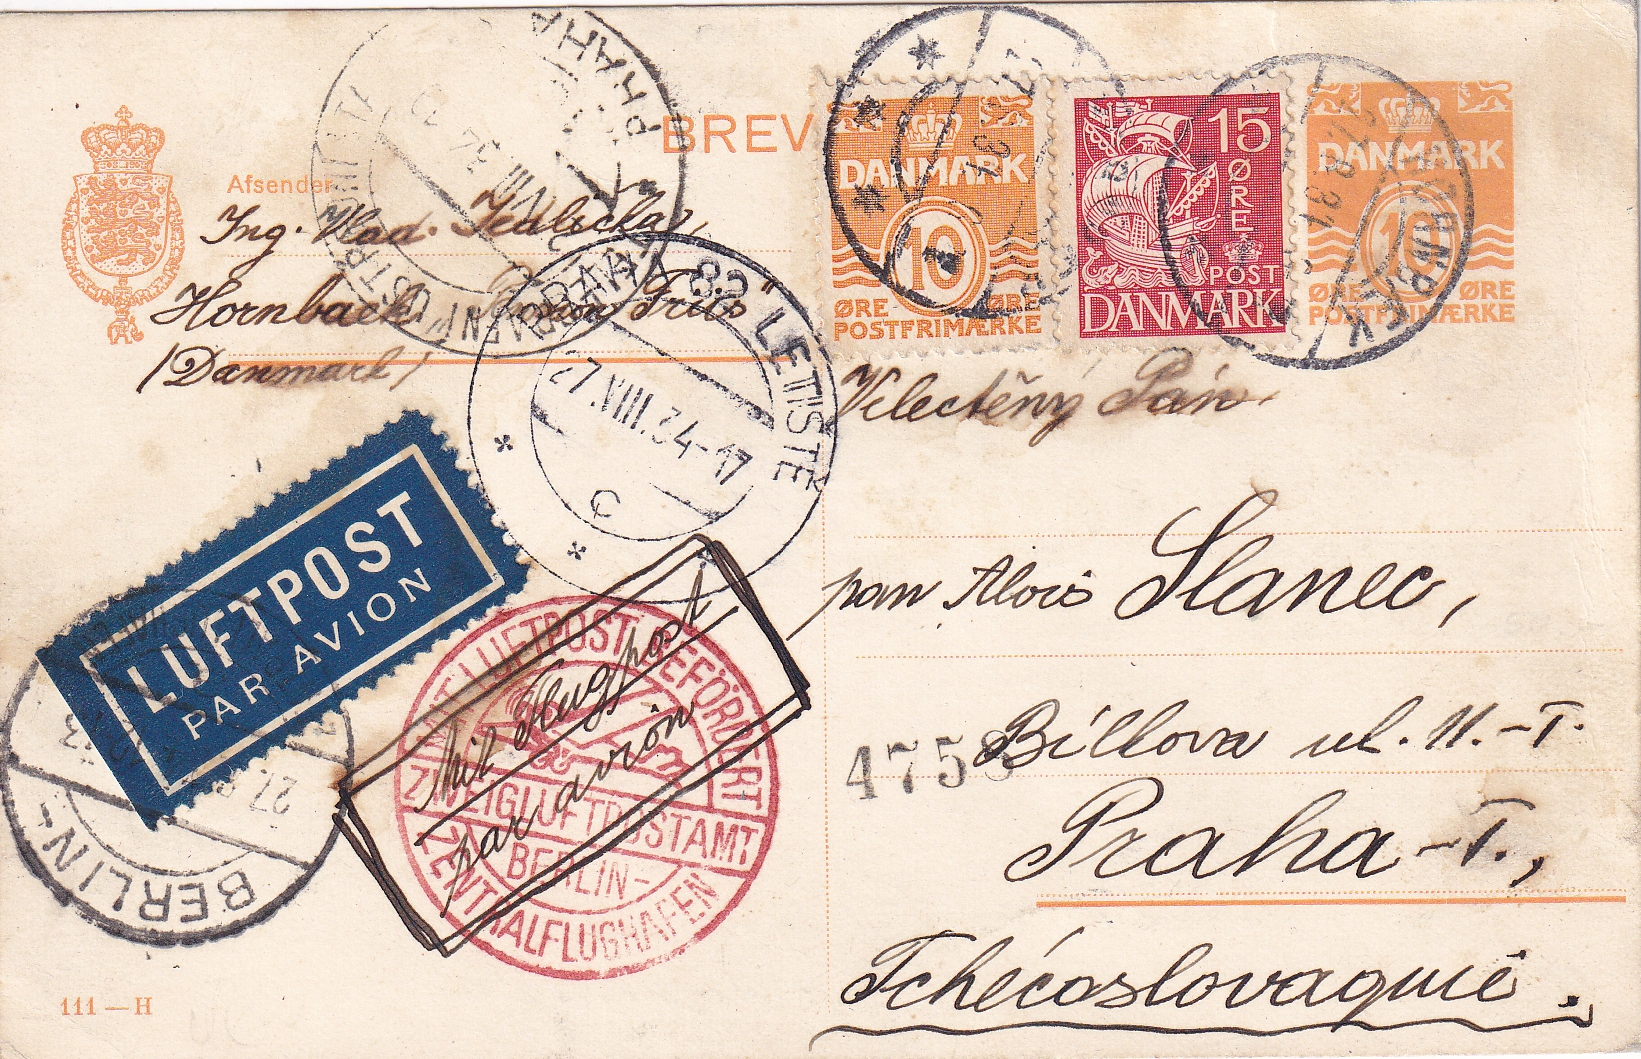 BREV
Afsender
Ing. Vlad. Jedlička,
Hornbæk
/Danmark/
DANMARK
10
ØRE ØRE
POSTFRIMÆRKE
15
ØRE
POST
DANMARK
DANMARK
10
ØRE ØRE
POSTFRIMÆRKE
PRAHA
PRAHA 82
LETIŠTĚ
27.VIII.34-17
LUFTPOST
PAR AVION
MIT LUFTPOST BEFÖRDERT
ZWEIGLUFTPOSTAMT
BERLIN-
ZENTRALFLUGHAFEN
Mit Flugpost
par avion
BERLIN-
Velectěný Pán,
pan Alois Slanec,
4758
Bíllova ul. 11.-T.
Praha-T.,
Tchécoslovaquié.
111-H